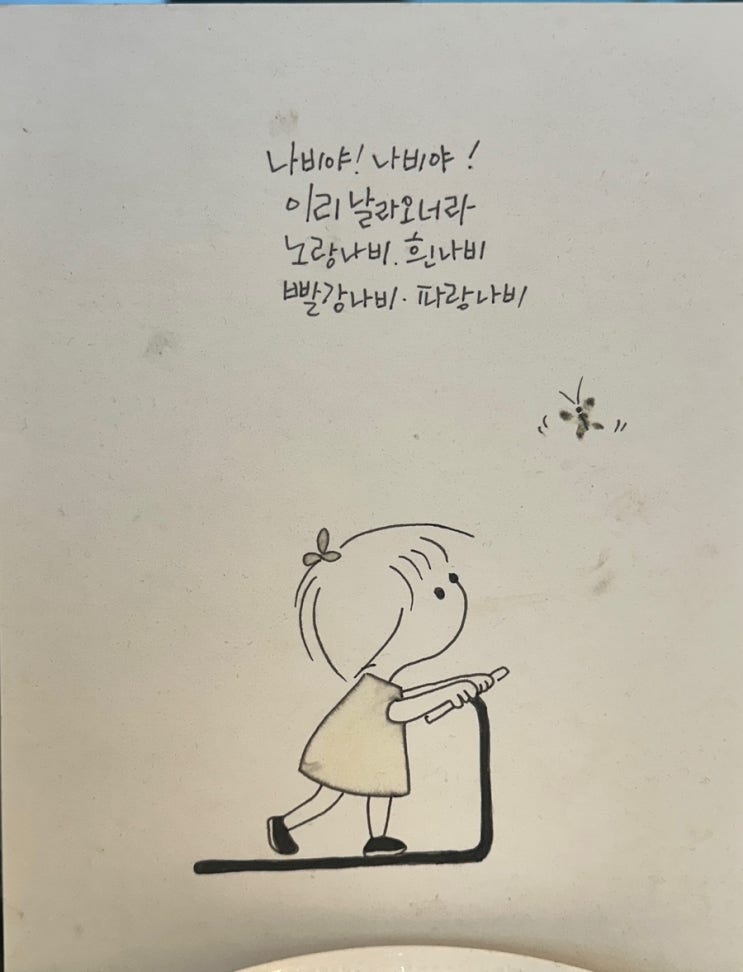 나비야! 나비야!
이리 날라오너라
노랑나비. 흰나비
빨강나비. 파랑나비